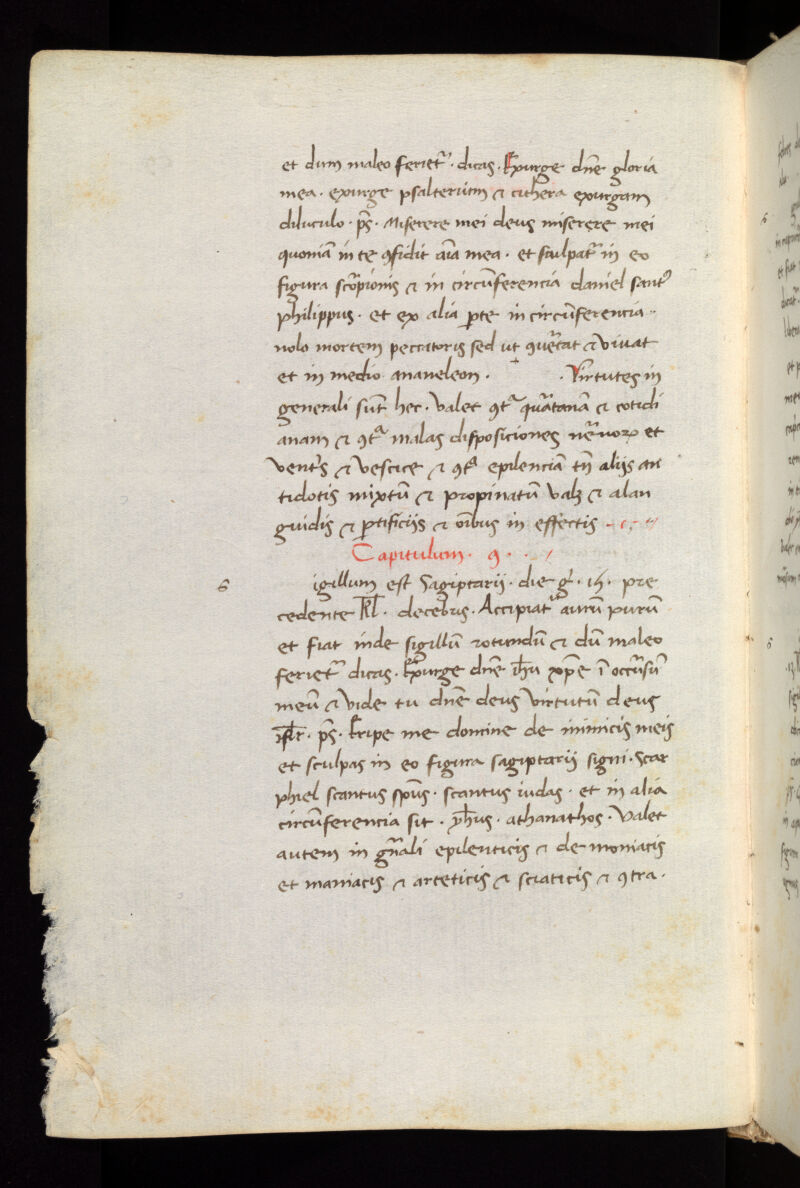 et dum maleo feriet᷑ · dicas · Exurge dn̄e gloria
mea · exurge psalterium & cithera exurgam
diluculo · ps̄ · Miserere mei deus miserere mei
quoniā in te ꝯfidit aīa mea · et sculpat᷑ in eo
figura scorpionis & in circūferencia daniel sant᷑
philippus · et ex alia parte in circūferencia ··
nolo mortem peccatoris sed ut ꝯuertat & vivat
et in medio ananeleon · · Virtutes in
generali sūt hec · valet ꝯtª quartanā & cotidi
anam & ꝯtª malas disposiciones neruoꝝ et
ventris & vescice & ꝯtª epilenciā tn̄ aliis an
tidotis mixtū & propinatū valꝫ & alan
guidis & pontificiis & oībus in effectis
Capitulum · 9 ·
s igillum est Sagiptarii · die gͥ · 15 · pre
cedente kl̄ · decēbris · Accipiat᷑ aurū purū
et fiat inde sigillū rotundū & dū maleo
feriet᷑ dicas · Exurge dn̄e ih̄u xp̄e ī occursū
meū & vide tu dn̄e deus virtutū deus
isr̄l · ps̄ · Eripe me domine de inimicis meis
et sculpas in eo figura sagiptarii signi · Scar
phiel scantus sp̄us · scantus iudas · et in alia
circūferencia sit · yh̄us · athanathos · Valet
autem in gn̄ali epilenticis & de moniacis
et maniacis & arteticis & sciaticis & ꝯtra ·